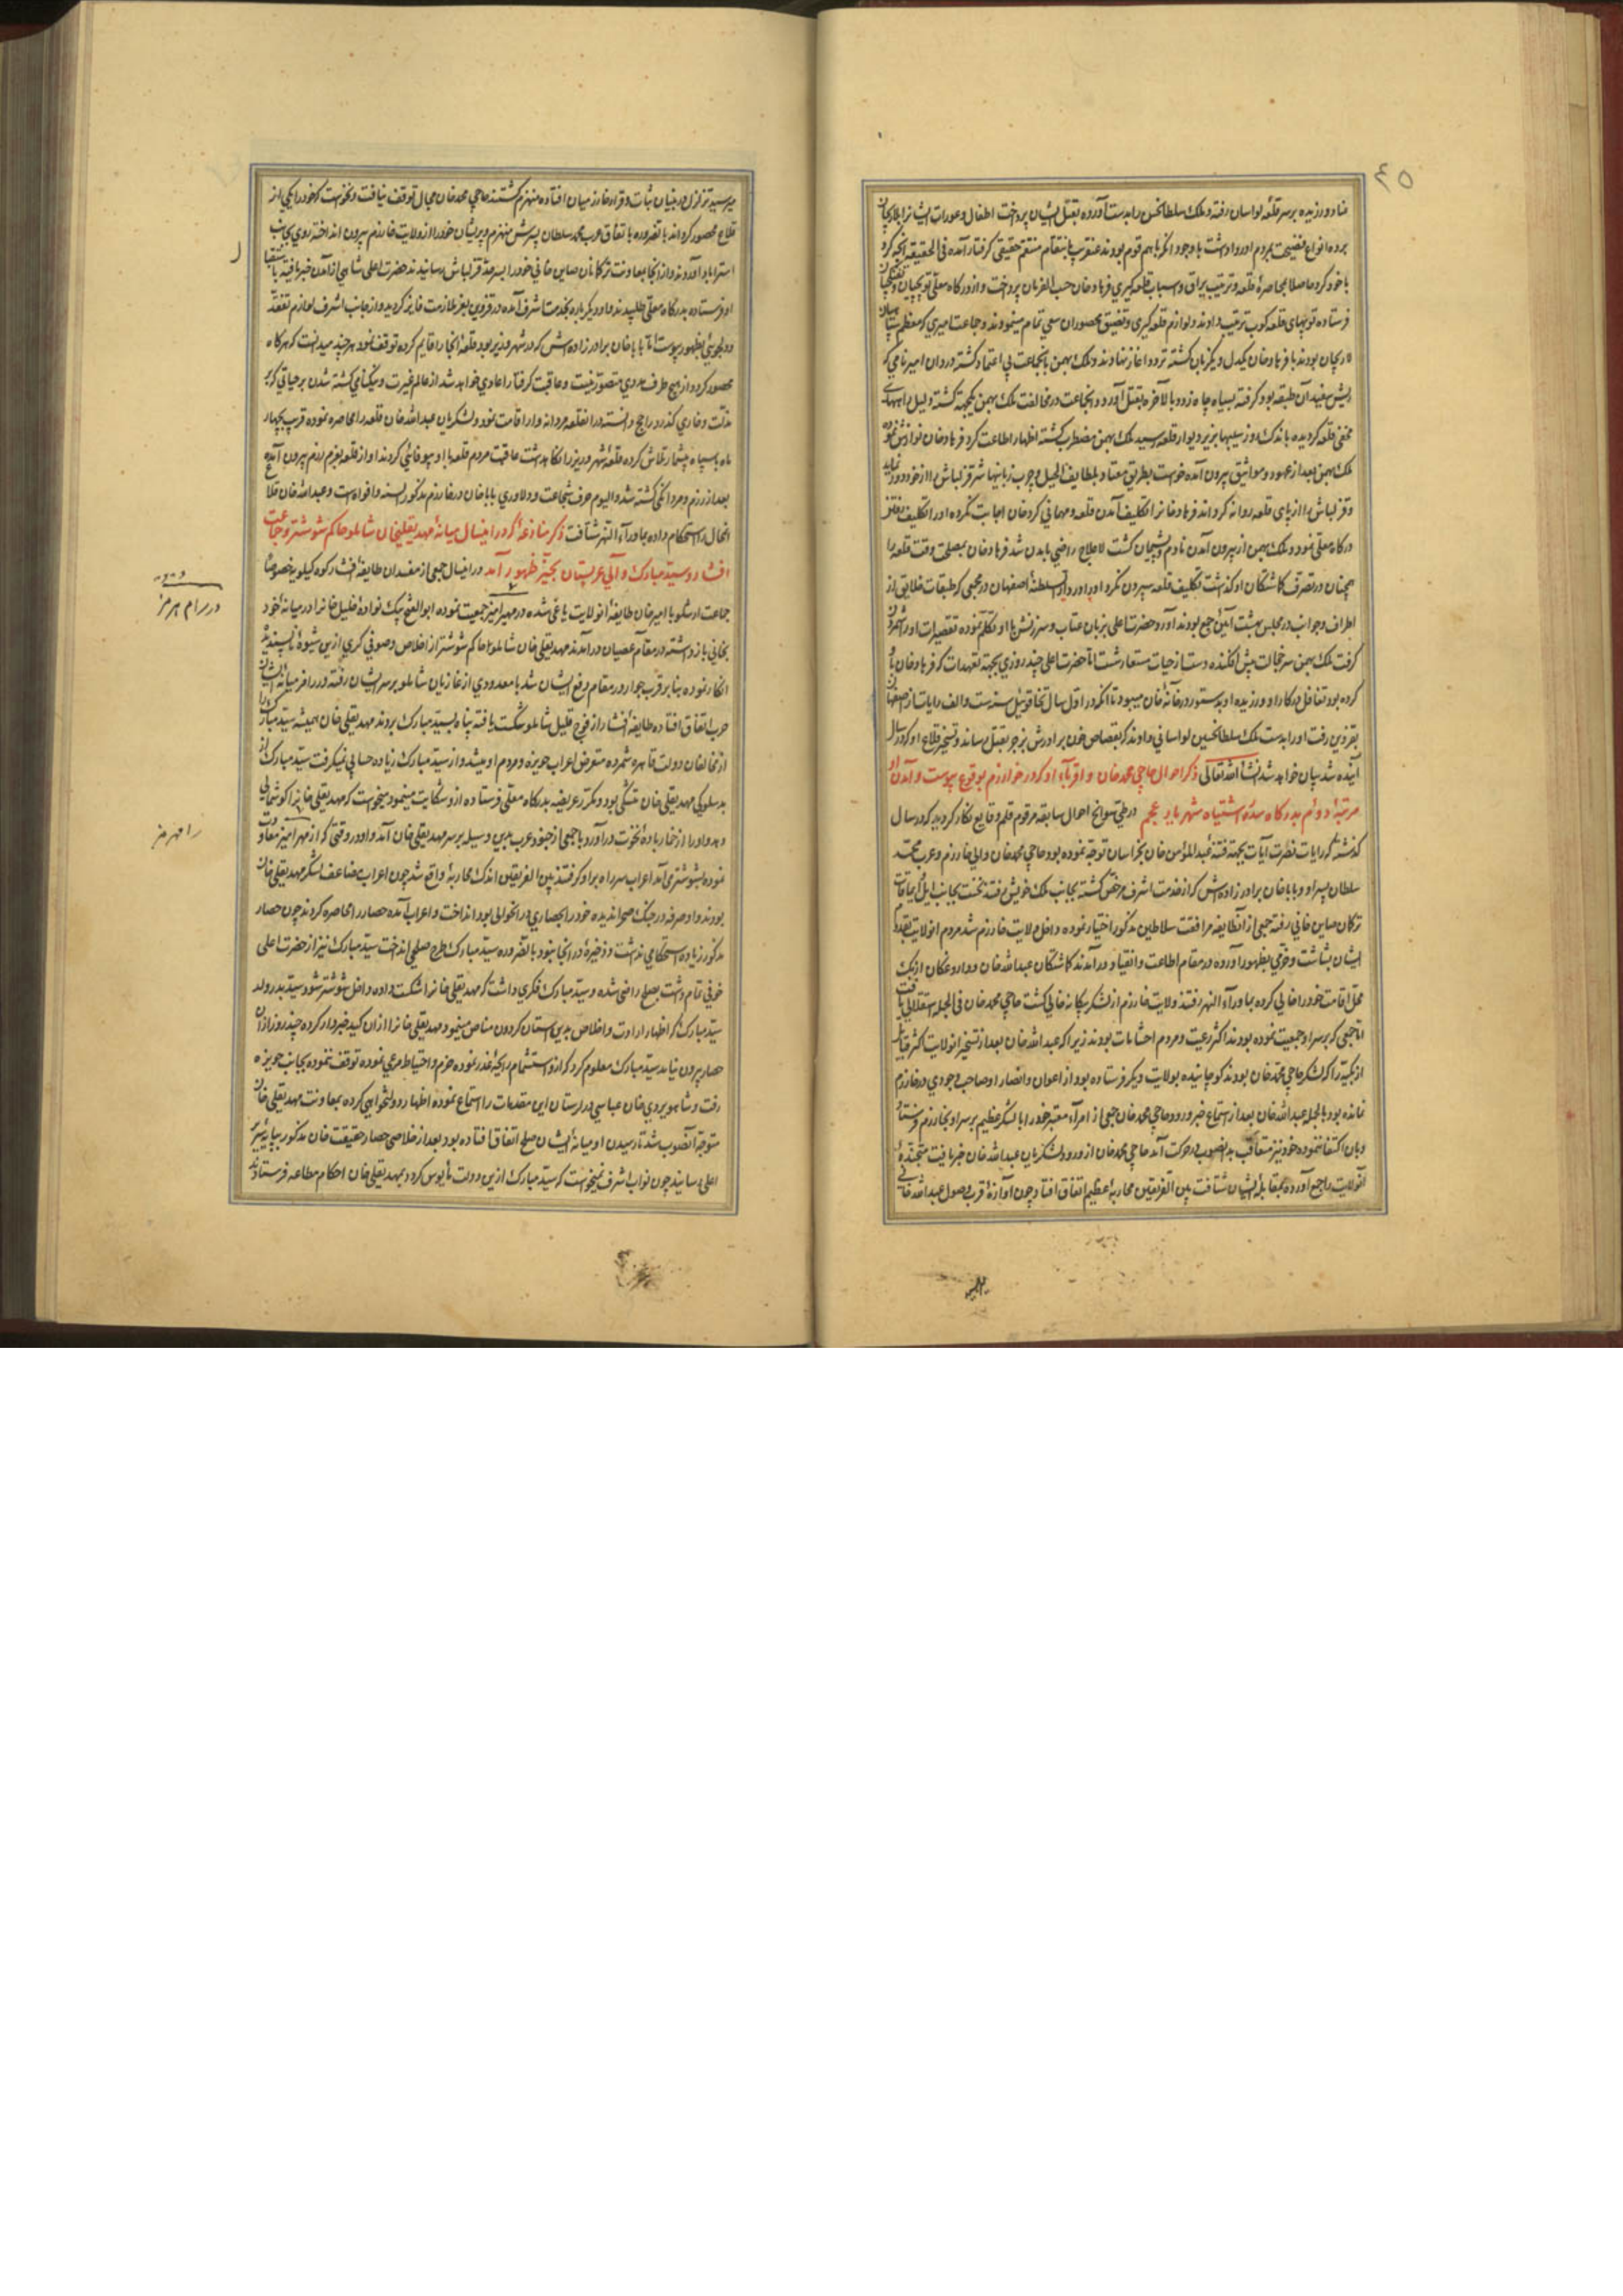 ٤٥
عناد ورزیده برسر قلعه لواسان رفته و ملک سلطانحسین را بدست آورده بقتل ایشان پرداخت اطفال و عورات ایشانرا بلاریجان
برده انواع فضیحت بمردم او رواداشت باوجود آنکه باهم قوم بودند عنقریب بانتقام منتقم حقیقی گرفتار آمده فی الحقیقه آنچه کرد
با خود کرد حاصلا بمحاصرهٔ قلعه و ترتیب یراق و اسباب قلعه گیری فرهادخان حسب الفرمان پرداخت و از درگاه معلی توپچیان و تفنگچیان
فرستاده توپهای قلعه کوب ترتیب دادند و لوازم قلعه گیری و تضییق محصوران سعی تمام مینمودند و جماعت امیری که معظم سپاه
لاریجان بودند با فرهادخان یکدل و یکزبان گشته تردد آغاز نهادند و ملک بهمن بآنجماعت بی اعتماد گشته
ریش سفید آن طبقه بود گرفته بسیاه چاه زد و بالاخره بقتل آورد و آنجماعت در مخالفت ملک بهمن یکجهة گشته دلیل راههای
مخفی قلعه گردیده باندک روز سیبها بزیر دیوار قلعه رسید ملک بهمن مضطرب گشته اظهار اطاعت کرد فرهادخان نوازش نمود
ملک بهمن بعد از عهود و مواثیق بیرون آمده خواست بطریق معتاد بلطایف الحیل و چرب زبانیها شر قزلباش را از خود دور نماید
و قزلباش را از پای قلعه روانه گرداند فرهادخانرا تکلیف آمدن قلعه و مهمانی کرد خان اجابت نکرده او را تکلیف رفتن
درگاه معلی نمود و ملک بهمن از بیرون آمدن نادم و پشیمان گشت لاعلاج راضی بآمدن شد فرهادخان بمصلحت وقت قلعه را
همچنان در تصرف گماشتگان او گذاشت تکلیف قلعه سپردن نکرد او را در دارالسلطنهٔ اصفهان در مجمعی که طبقات خلایق از
اطراف و جوانب در مجلس بهشت آیین جمع بودند آورد و حضرت اعلی بزبان عتاب و سرزنش با او تکلم نموده تقصیرات او را شمردن
گرفت ملک بهمن سر خجالت پیش افکنده دست از حیات مستعار شست اما حضرت اعلی چند روزی بجهة تعهدات که فرهادخان باو
کرده بود تغافل در کار او ورزیده او بدستور در خانهٔ خان میبود تا آنکه در اول سال تخاقوئیل سنه ست و الف رایات از صفهان
بقزوین رفت او را بدست ملک سلطانحسین لواسانی دادند که بقصاص خون برادرش بزجر بقتل رساند و تسخیر قلاع او که در سال
آینده شد بیان خواهد شد انشاء الله تعالی ذکر احوال حاجی محمدخان و اقرباء او که در خوارزم بوقوع پیوست و آمدن او
مرتبهٔ دوئم بدرگاه سدره اشتباه شهریار عجم در طی سوانح احوال سابقه مرقوم قلم وقایع نگار گردید که در سال
گذشته که رایات نصرت آیات بجهة فتنهٔ عبدالمؤمن خان بخراسان توجه نموده بود حاجی محمدخان والی خارزم و عرب محمد
سلطان پسر او و باباخان برادرزاده اش که از خدمت اشرف مرخص گشته بجانب ملک خویش رفتند نخست بجانب ایل ایماقات
ترکان صاین خانی رفته جمعی از آنطایفه مرافقت سلاطین مذکور اختیار نموده داخل ولایت خارزم شد مردم آنولایت بقدوم
ایشان بشاشت و خرمی بظهور آورده در مقام اطاعت و انقیاد درآمدند گماشتگان عبدالله خان و داروغگان اوزبک
محل اقامت خود را خالی کرده بماوراء النهر رفتند ولایت خارزم از لشکر بیگانه خالی گشت حاجی محمدخان فی الجمله استقلالی یافت
اما جمعی که بر سر او جمعیت نموده بودند اکثر رعیت و مردم احشامات بودند زیرا که عبدالله خان بعد از تسخیر آنولایت اکثر قبایل
ازبکیه را که لشکر حاجی محمدخان بودند کوچانیده بولایت دیگر فرستاده بود از اعوان و انصار او صاحب وجودی در خارزم
نمانده بود بالجمله عبدالله خان بعد از استماع خبر ورود حاجی محمدخان جمعی از امراء معتبر خود را با لشکر عظیم بر سر او بخارزم فرستاد
و بآن اکتفا ننموده خود نیز متعاقب بدانصوب در حرکت آمد حاجی محمدخان از ورود لشکریان عبدالله خان خبر یافت متجندهٔ
آنولایت را جمع آورده بمقابله ایشان شتافت بین الفریقین محاربهٔ عظیم اتفاق افتاد چون آوازهٔ قرب وصول عبدالله خان
میرسید تزلزل در بنیان ثبات و قرار خارزمیان افتاده منهزم گشتند حاجی محمدخان مجال توقف نیافت و نخواست که خود را یکی از
قلاع محصور گرداند بالضروره باتفاق عرب محمد سلطان پسرش منهزم و پریشان خود را از ولایت خارزم بیرون انداخته روی بجانب
استراباد آوردند و از آنجا بمعاونت ترکانان صاین خانی خود را بسرحد قزلباش رسانیدند حضرت اعلی شاهی از آمدن خبر یافته باستقبال
او فرستاده بدرگاه معلی طلبیدند و او دیگر باره بخدمت اشرف آمده در قزوین بعز ملازمت فایز گردید و از جانب اشرف لوازم تفقد
و دلجوئی بظهور پیوست اما باباخان برادرزاده اش که در شهر وزیر بود قلعهٔ آنجا را قایم کرده توقف نمود هر چند میدانست که هرگاه
محصور گردد از هیچ طرف مددی متصور نیست و عاقبت گرفتار اعادی خواهد شد از عالم غیرت و نیکنامی کشته شدن بر حیاتی که بر
مذلت و خاری گذرد راجح دانسته در آنقلعه مردانه وار اقامت نمود و لشکریان عبدالله خان قلعه را محاصره نموده قریب بچهار
ماه با سپاه بیشمار تلاش کرده قلعهٔ شهر وزیر را نگاهداشت عاقبت مردم قلعه با او بیوفائی کردند او از قلعه بعزم رزم بیرون آمده
بعد از رزم و مردانگی کشته شد و الیوم حرف شجاعت و دلاوری باباخان در خارزم مذکور السنه و افواه است و عبدالله خان قلاع
آنمحال را استحکام داده بماوراء النهر شتافت ذکر منازعهٔ که در اینسال میانهٔ مهدیقلیخان شاملو حاکم شوشتر و جماعت
افشار و سید مبارک والی عربستان بحیز ظهور آمد در اینسال جمعی از مفسدان طایفهٔ افشار کوه کیلویه خصوصا
جماعت ارشلو با امیرخان طایفهٔ آنولایت یاغی شده در مهرامیز جمعیت نموده ابوالفتح بیک نوادهٔ خلیل خانرا در میانهٔ خود
بخانی بازداشته در مقام عصیان درآمدند مهدیقلی خان شاملو حاکم شوشتر از اخلاص و صوفی گری ازین شیوهٔ ناپسندیده
انکار نموده بنا بر قرب جوار در مقام دفع ایشان شد با معدودی از غازیان شاملو بر سر ایشان رفته در رامز میانهٔ ایشان
حرب اتفاق افتاده طایفهٔ افشار از فوج قلیل شاملو شکست یافته پناه بسید مبارک بردند مهدیقلی خان همیشه سید مبارک را
از مخالفان دولت قاهره شمرده متعرض اعراب حویزه و مردم او میشد و از سید مبارک زیاده حسابی نمیگرفت سید مبارک از
بدسلوکی مهدیقلی خان متشکی بود و مکرر عریضه بدرگاه معلی فرستاده ازو شکایت مینمود میخواست که مهدیقلی خانرا گوشمالی
دهد و او را از خمار باده نخوت درآورد با جمعی از جنود عرب بدین وسیله بر سر مهدیقلی خان آمد و او در وقتی که از مهرامیز معاودت
نموده بشوشتر می آمد اعراب سر راه بر او گرفتند بین الفریقین اندک محاربهٔ واقع شد چون اعراب مضاعف لشکر مهدیقلی خان
بودند و او صرفه در جنگ صحرا ندیده خود را بحصاری در آنحوالی بود انداخت و اعراب آمده حصار را محاصره کردند چون حصار
مذکور زیاده استحکامی نداشت و ذخیرهٔ در آنجا نبود بالضروره سید مبارک طرح صلحی انداخت سید مبارک نیز از حضرت اعلی
خوفی تمام داشت بصلح راضی شده و سید مبارک فکری داشت که مهدیقلی خانرا شکست داده داخل شوشتر شود سید بدر ولد
سید مبارک که اظهار ارادت و اخلاص بدین آستان گردون مناص مینمود مهدیقلی خانرا از آن کید خبردار کرده چند روز از آن
حصار بیرون نیامد سید مبارک معلوم کرد که ازو استشمام رایحهٔ غدر نموده حزم و احتیاط مرعی نموده توقف ننموده بجانب حویزه
رفت و شاهویردی خان عباسی در لرستان این مقدمات را استماع نموده اظهار دولتخواهی کرده بمعاونت مهدیقلی خان
متوجه آنصوب شد تا رسیدن او میانهٔ ایشان صلح اتفاق افتاده بود بعد از خلاصی حصار حقیقت خان مذکور بپایهٔ سریر
اعلی رسانید چون نواب اشرف نمیخواست که سید مبارک ازین دولت مأیوس گردد بمهدیقلی خان احکام مطاعه فرستادند
در رام هرمز
رامهرمز